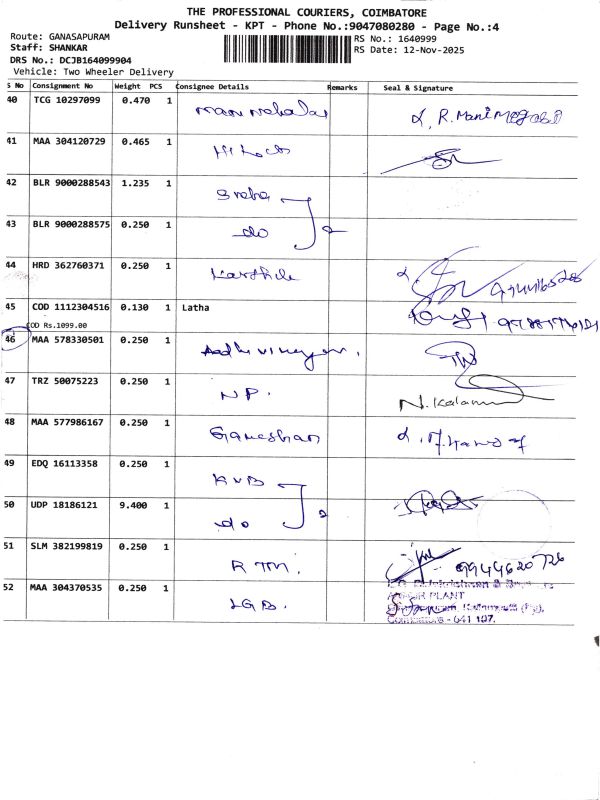 THE PROFESSIONAL COURIERS, COIMBATORE
Delivery Runsheet - KPT - Phone No.:9047080280 - Page No.:4
Route: GANASAPURAM
RS No.: 1640999
Staff: SHANKAR
RS Date: 12-Nov-2025
DRS No.: DCJB164099904
Vehicle: Two Wheeler Delivery
S No Consignment No Weight PCS Consignee Details Remarks Seal & Signature
40 TCG 10297099 0.470 1
41 MAA 304120729 0.465 1 Hitech
42 BLR 9000288543 1.235 1 Sneha
43 BLR 9000288575 0.250 1 do 2
44 HRD 362760371 0.250 1 Karthik
45 COD 1112304516 0.130 1 Latha
COD Rs.1099.00
46 MAA 578330501 0.250 1
47 TRZ 50075223 0.250 1 NP. N.Kalamani
48 MAA 577986167 0.250 1 Ganeshan
49 EDQ 16113358 0.250 1 KVB
50 UDP 18186121 9.400 1 do 2
51 SLM 382199819 0.250 1 RTM. 9944620726
52 MAA 304370535 0.250 1 LGB.
PLANT
Coimbatore - 641 107.